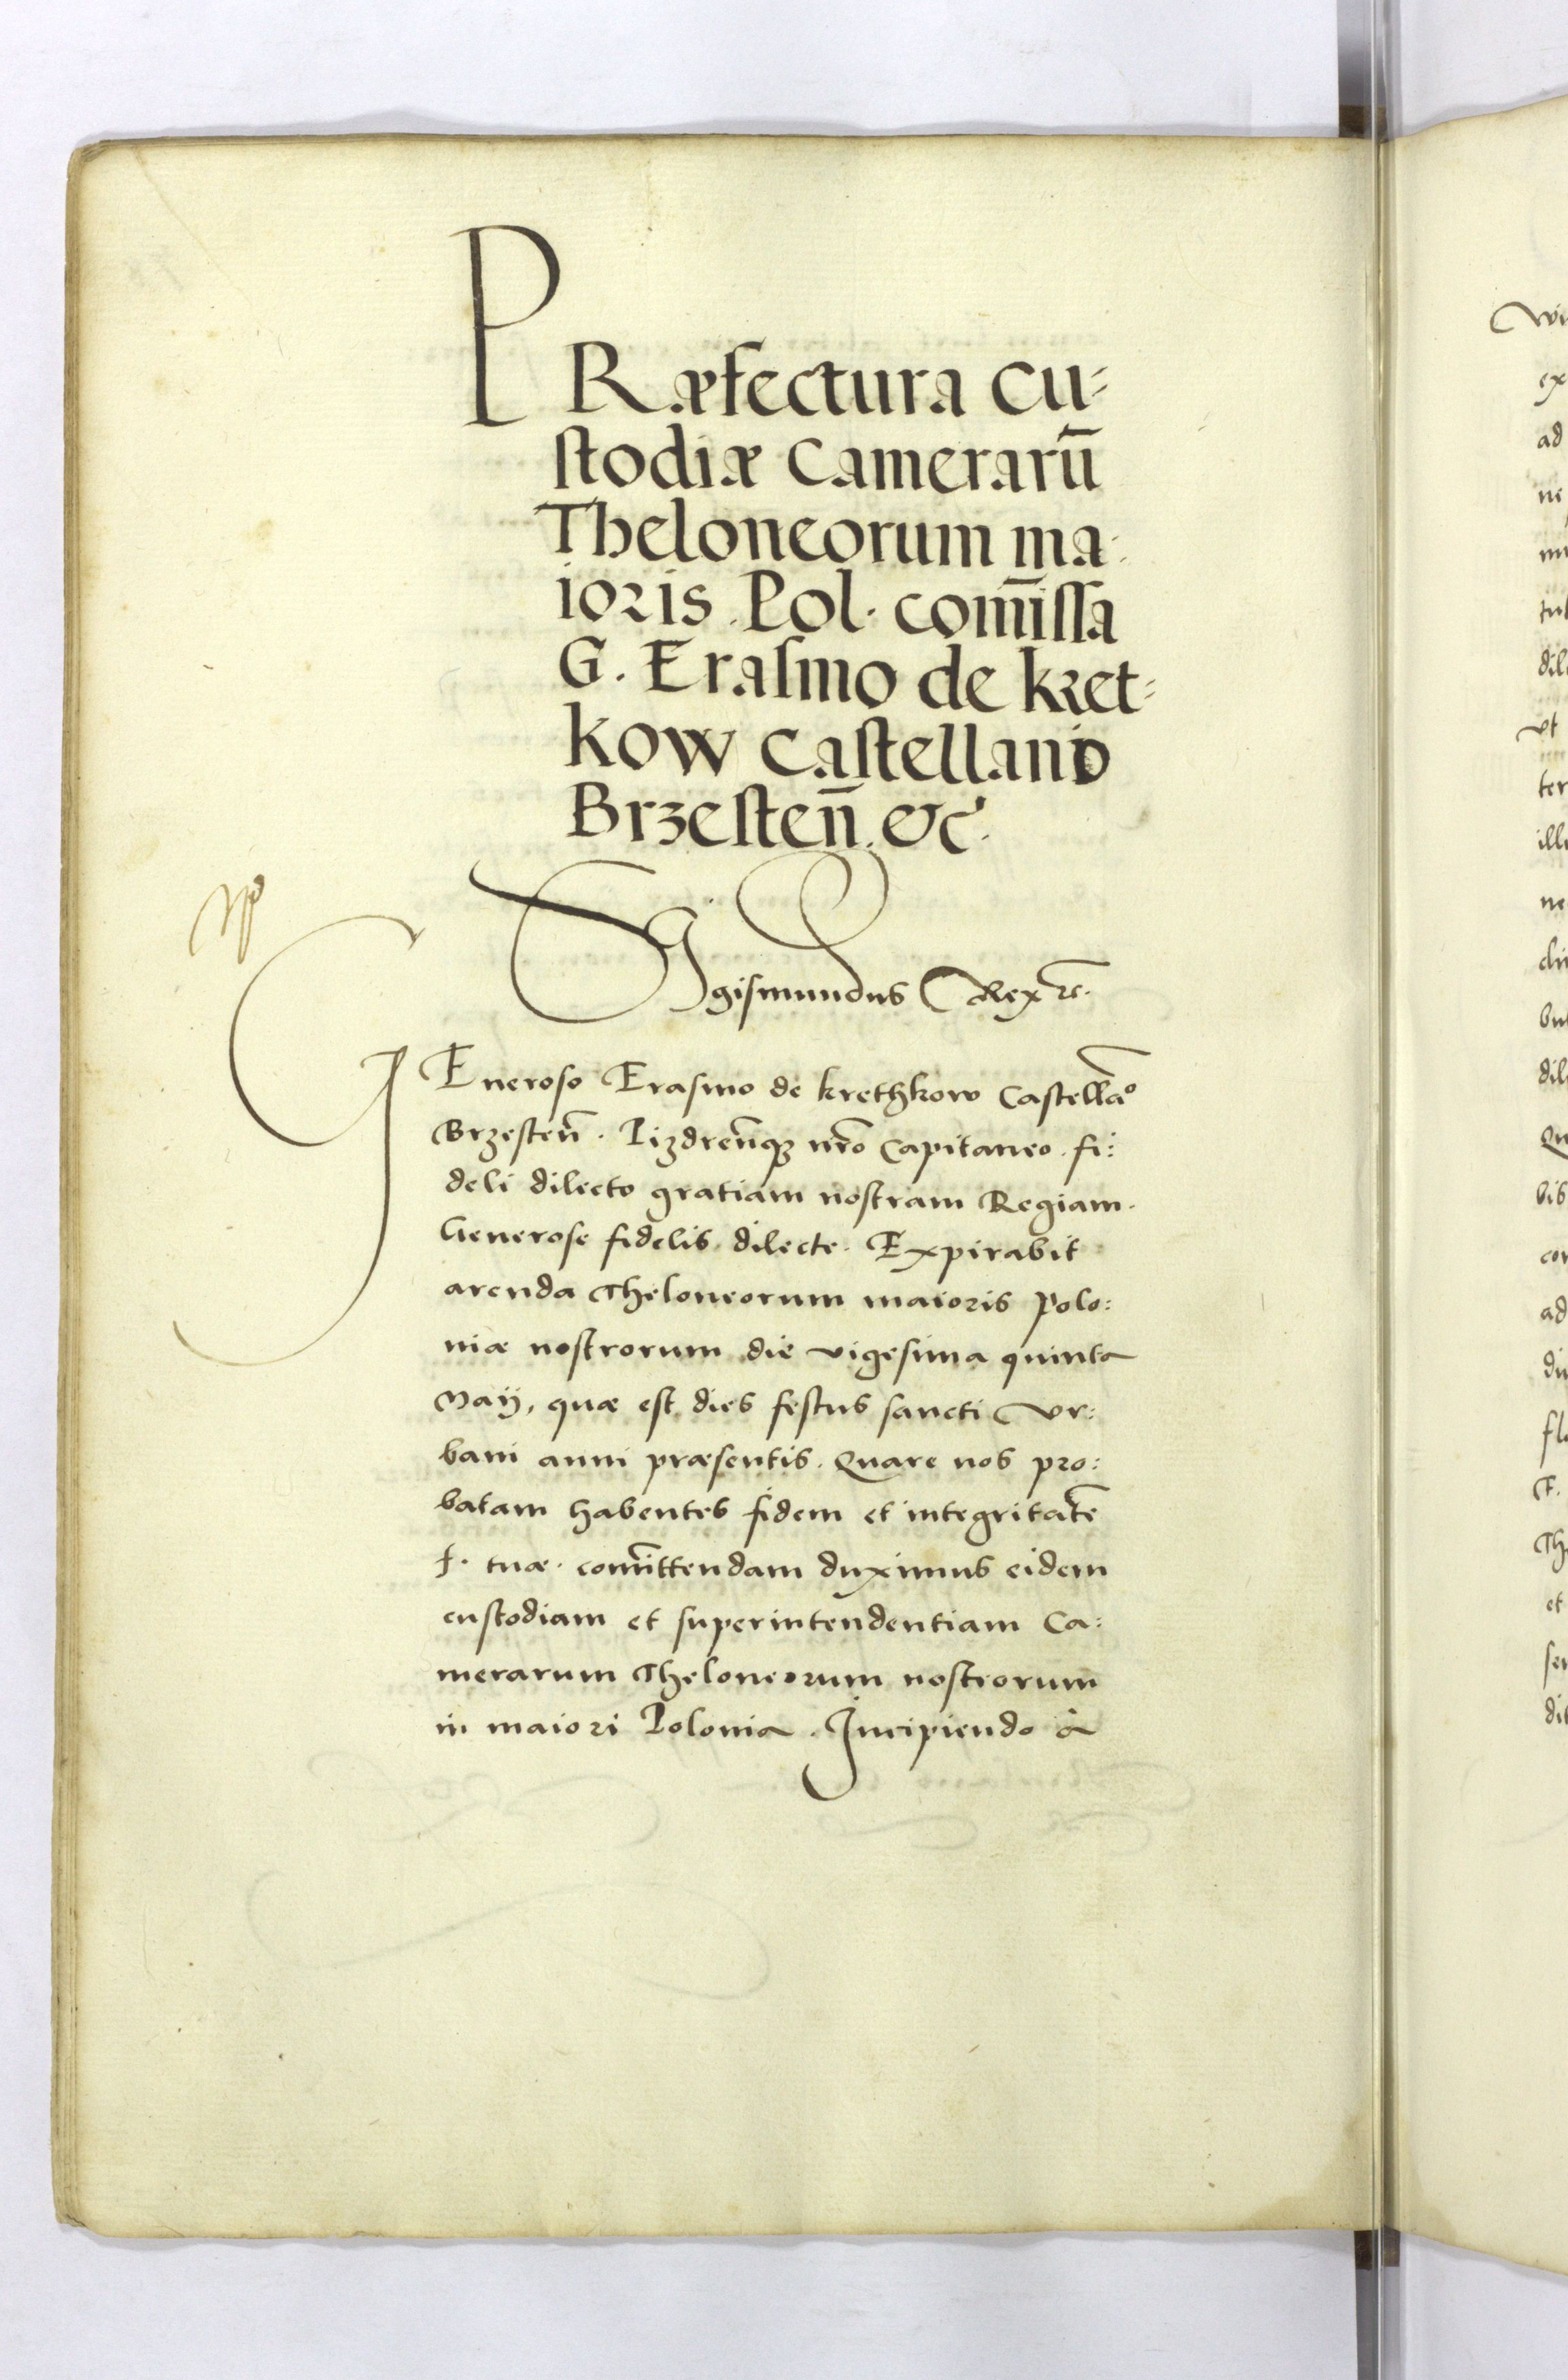 PRæfectura cu=
stodiæ Camerarū
Theloneorum ma-
ioris Pol. com̄issa
G. Erasmo de kret=
kow Castellano
Brzesten̄. etc.
Sigismundus Rex etc.
GEneroso Erasmo de krethkow Castellāo
Brzesten̄. Pizdren̄q₃ nr̄o Capitaneo. fi:
deli dilecto gratiam nostram Regiam.
Generose fidelis dilecte. Expirabit
arenda Theloneorum maioris Polo:
niæ nostrorum die vigesima quinta
Maij, quæ est dies festus sancti Vr:
bani anni præsentis. Quare nos pro:
batam habentes fidem et integritatē
f. tuæ. com̄ittendam duximus eidem
custodiam et superintendentiam Ca:
merarum Theloneorum nostrorum
in maiori Polonia. Incipiendo à